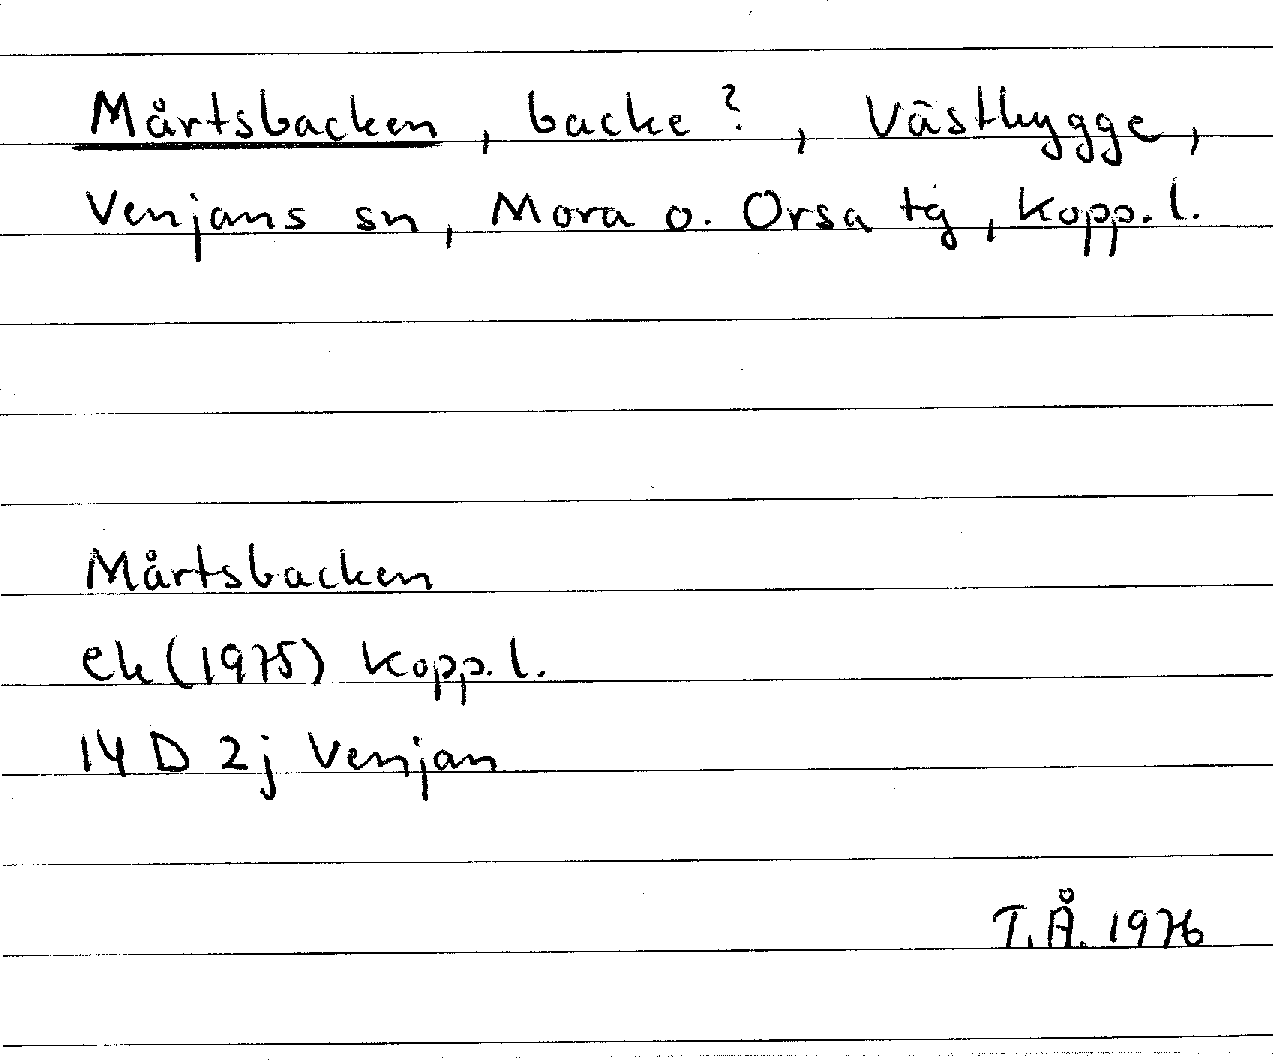 Mårtsbacken, backe?, Västbygge,
Venjans sn, Mora o. Orsa tg, Kopp. l.
Mårtsbacken
ek (1975) Kopp. l.
14 D 2j Venjan
T.Å. 1976